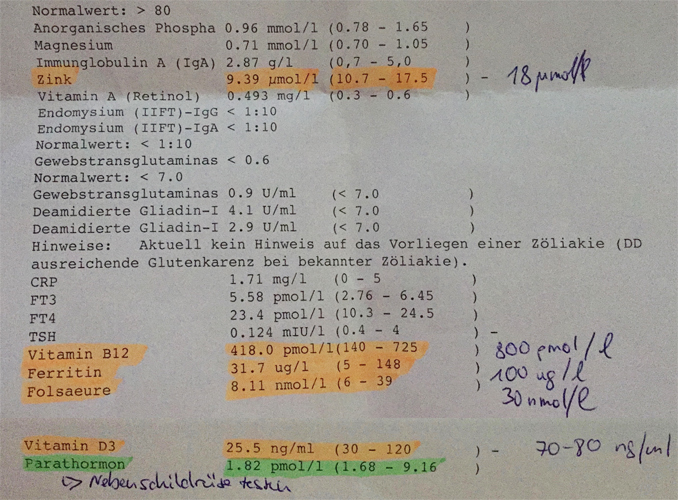 Normalwert: > 80
Anorganisches Phospha 0.96 mmol/l (0.78 - 1.65 )
Magnesium 0.71 mmol/l (0.70 - 1.05 )
Immunglobulin A (IgA) 2.87 g/l (0,7 - 5,0 )
Zink 9.39 µmol/l (10.7 - 17.5 ) - 18 µmol/l
Vitamin A (Retinol) 0.493 mg/l (0.3 - 0.6 )
Endomysium (IIFT)-IgG < 1:10
Endomysium (IIFT)-IgA < 1:10
Normalwert: < 1:10
Gewebstransglutaminas < 0.6
Normalwert: < 7.0
Gewebstransglutaminas 0.9 U/ml (< 7.0 )
Deamidierte Gliadin-I 4.1 U/ml (< 7.0 )
Deamidierte Gliadin-I 2.9 U/ml (< 7.0 )
Hinweise: Aktuell kein Hinweis auf das Vorliegen einer Zöliakie (DD
ausreichende Glutenkarenz bei bekannter Zöliakie).
CRP 1.71 mg/l (0 - 5 )
FT3 5.58 pmol/l (2.76 - 6.45 )
FT4 23.4 pmol/l (10.3 - 24.5 )
TSH 0.124 mIU/l (0.4 - 4 ) -
Vitamin B12 418.0 pmol/l(140 - 725 ) 800 pmol/l
Ferritin 31.7 ug/l (5 - 148 ) 100 ug/l
Folsaeure 8.11 nmol/l (6 - 39 ) 30 nmol/l
Vitamin D3 25.5 ng/ml (30 - 120 ) - 70-80 ng/ml
Parathormon 1.82 pmol/l (1.68 - 9.16 )
-> Nebenschildrüse testen